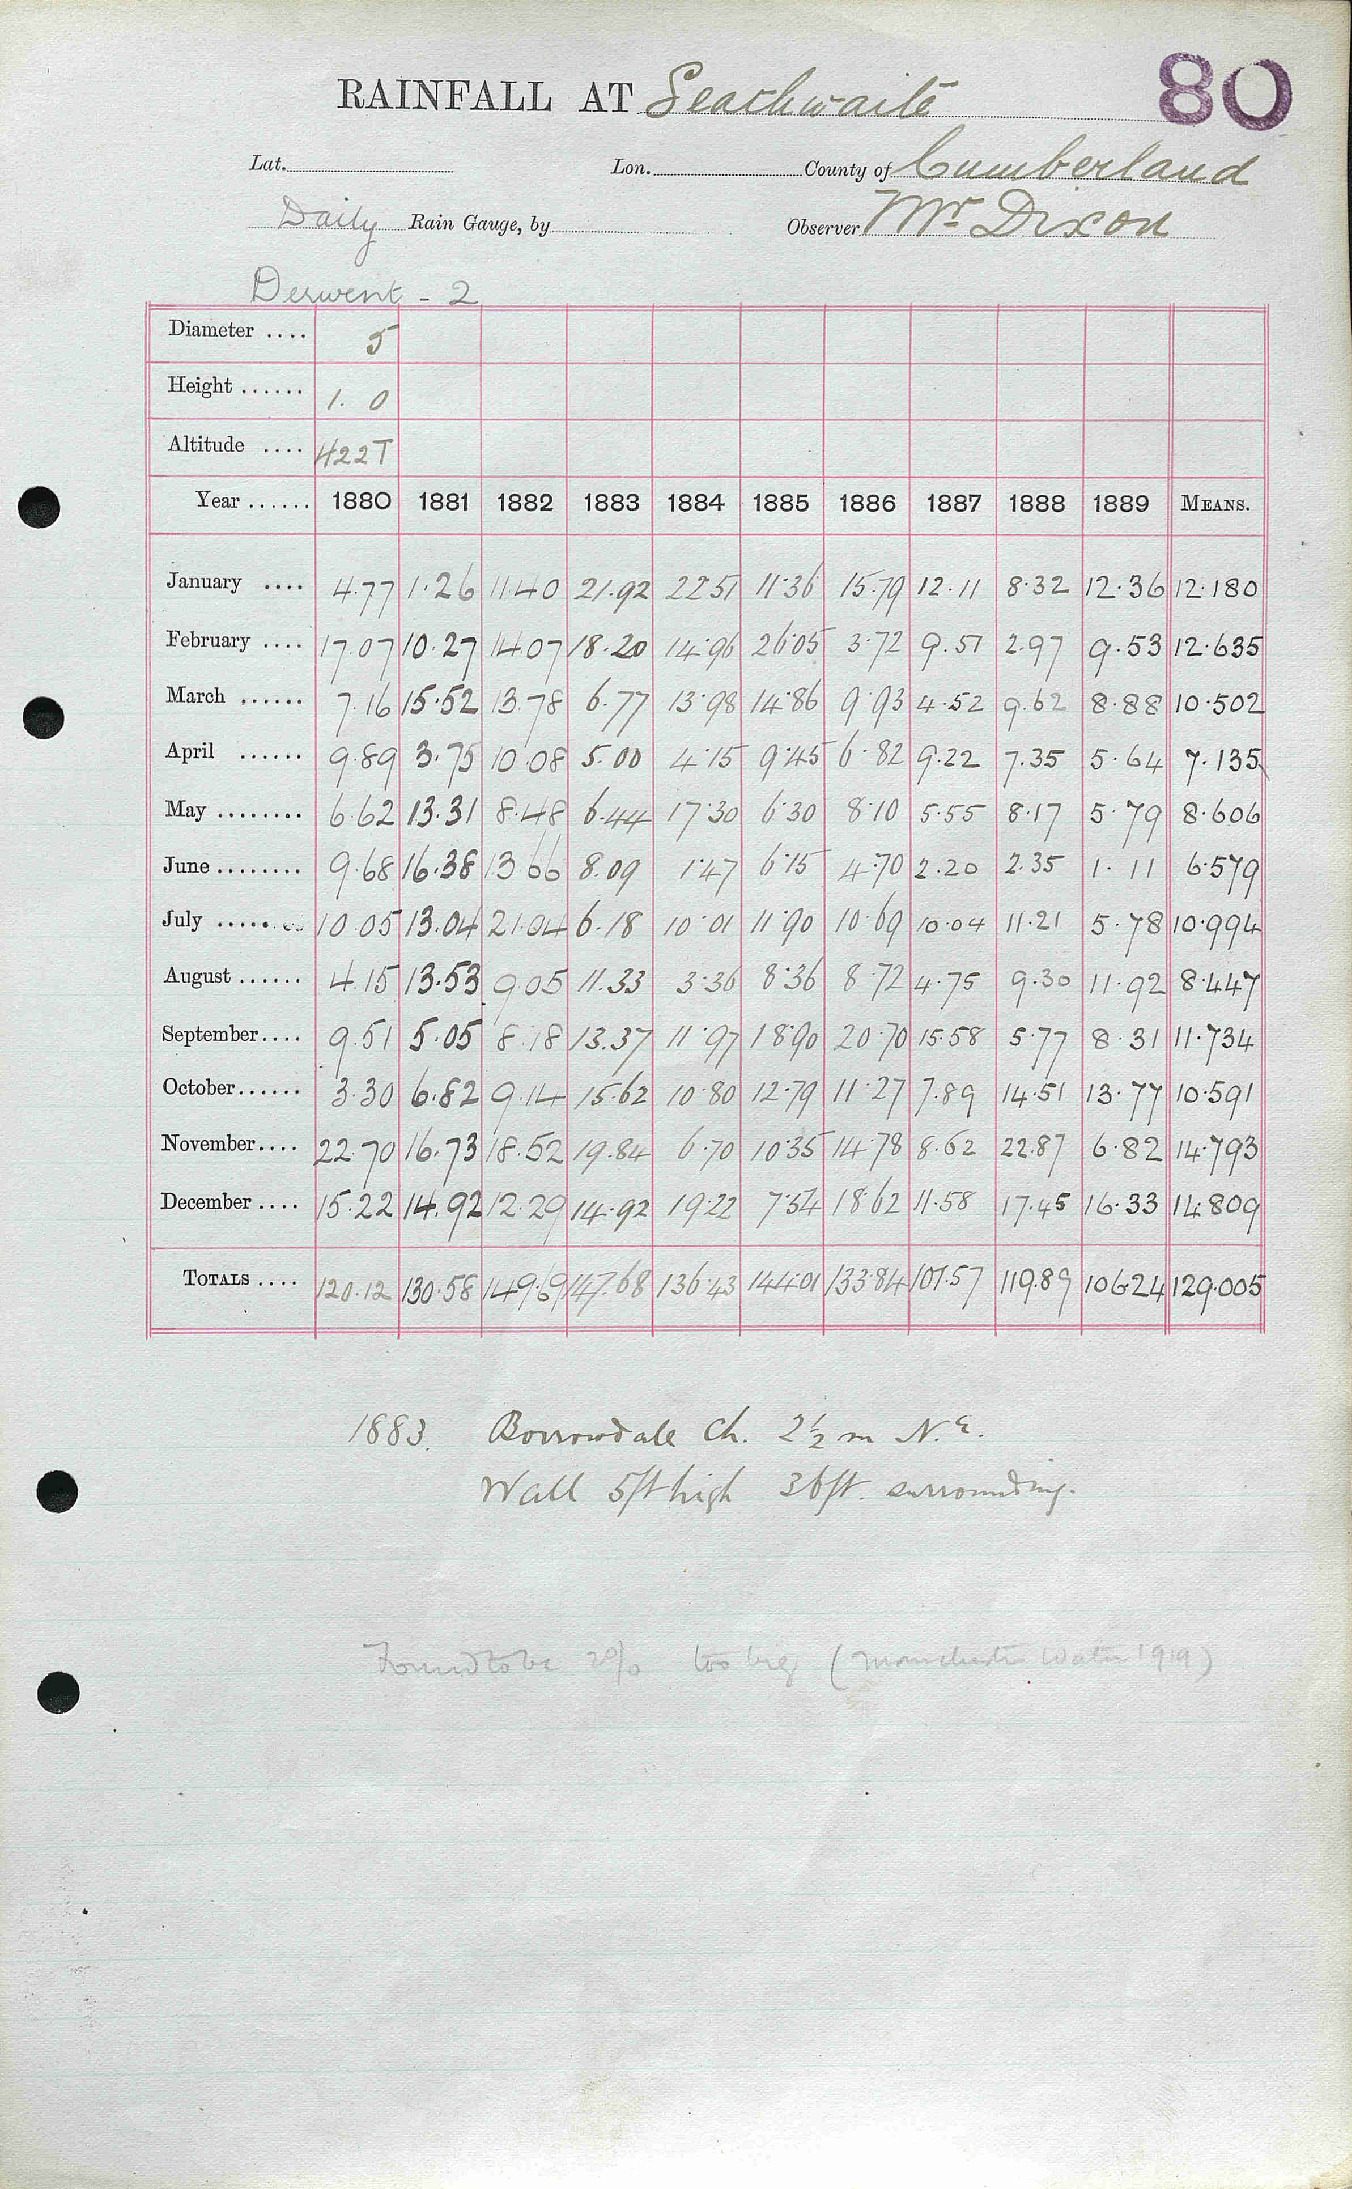 80
RAINFALL AT Seathwaite
Lat. Lon. County of Cumberland
Daily Rain Gauge, by Observer Mr Dixon
Derwent - 2
Diameter .... 5
Height ...... 1. 0
Altitude .... 422T
Year ...... 1880 1881 1882 1883 1884 1885 1886 1887 1888 1889 MEANS.
January .... 4.77 1.26 11.40 21.92 22.51 11.36 15.79 12.11 8.32 12.36 12.180
February .... 17.07 10.27 14.07 18.20 14.96 26.05 3.72 9.51 2.97 9.53 12.635
March ...... 7.16 15.52 13.78 6.77 13.98 14.86 9.93 4.52 9.62 8.88 10.502
April ...... 9.89 3.75 10.08 5.00 4.15 9.45 6.82 9.22 7.35 5.64 7.135
May ........ 6.62 13.31 8.48 6.44 17.30 6.30 8.10 5.55 8.17 5.79 8.606
June ........ 9.68 16.38 13.66 8.09 1.47 6.15 4.70 2.20 2.35 1.11 6.579
July ........ 10.05 13.04 21.04 6.18 10.01 11.90 10.69 10.04 11.21 5.78 10.994
August ...... 4.15 13.53 9.05 11.33 3.36 8.36 8.72 4.75 9.30 11.92 8.447
September.... 9.51 5.05 8.18 13.37 11.97 18.90 20.70 15.58 5.77 8.31 11.734
October...... 3.30 6.82 9.14 15.62 10.80 12.79 11.27 7.89 14.51 13.77 10.591
November.... 22.70 16.73 18.52 19.84 6.70 10.35 14.78 8.62 22.87 6.82 14.793
December .... 15.22 14.92 12.29 14.92 19.22 7.54 18.62 11.58 17.45 16.33 14.809
TOTALS .... 120.12 130.58 149.69 147.68 136.43 144.01 133.84 101.57 119.89 106.24 129.005
1883. Borrowdale Ch. 2½ m N.E.
Wall 5ft high 36ft. surrounding.
Found to be 2% too big (Manchester Water 1919)